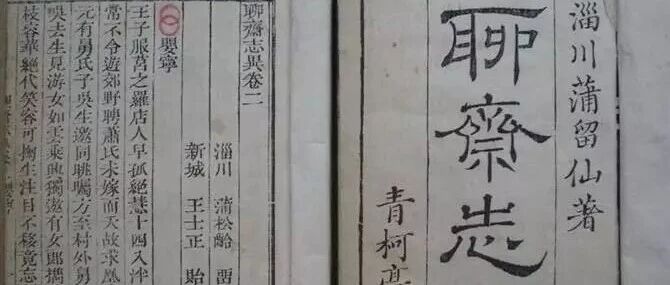 淄川蒲留仙著
聊齋志
青柯亭
聊齋志異卷二
淄川 蒲松齡 畱
新城 王士正 貽
嬰寧
王子服莒之羅店人早孤絕慧十四入泮
常不令遊郊野聘蕭氏未嫁而夭故求凰
元有舅氏子吳生邀同眺矚方至村外舅
吳去生見游女如雲乘興獨遨有女郎攜
枝容華絕代笑容可掬生注目不移竟忘